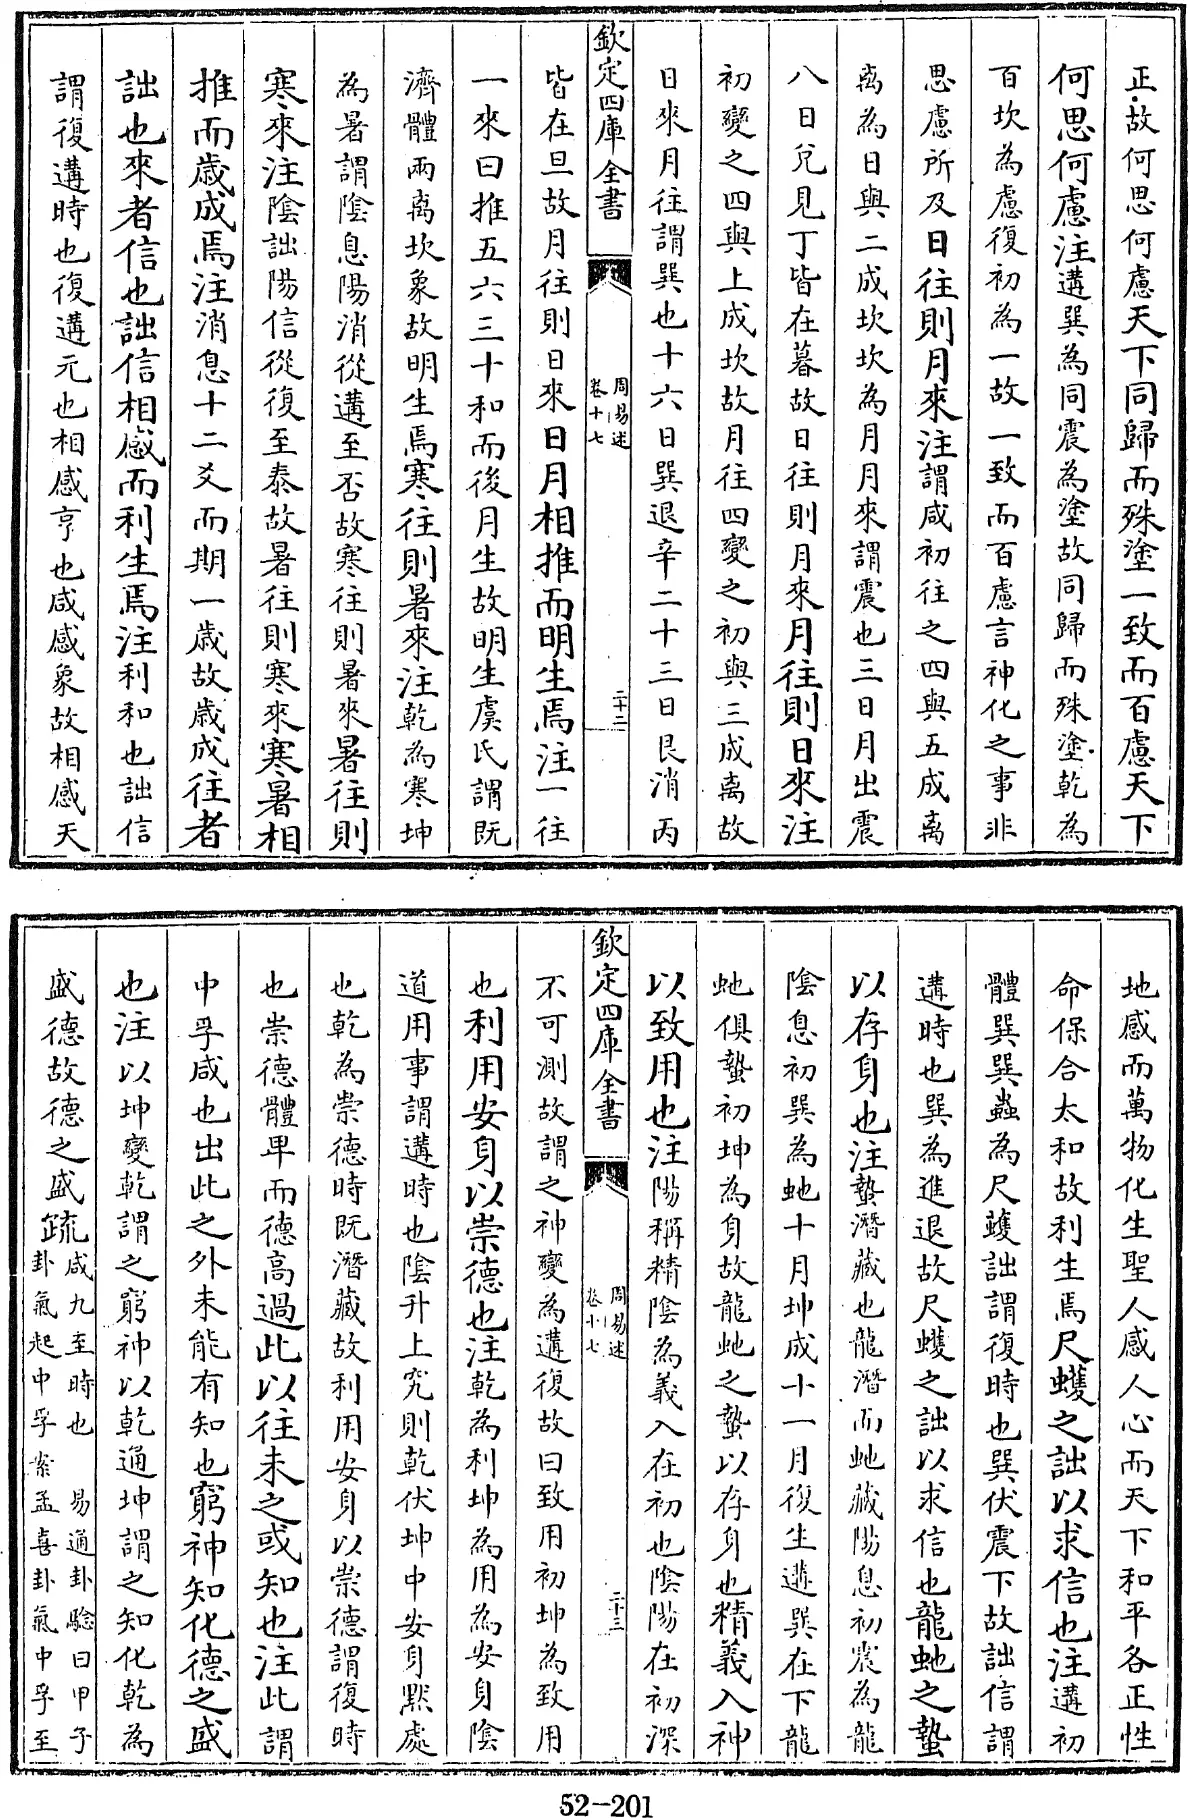 正故何思何慮天下同歸而殊塗一致而百慮天下
何思何慮注遘巽為同震為塗故同歸而殊塗乾為
百坎為慮復初為一故一致而百慮言神化之事非
思慮所及日往則月來注謂咸初往之四與五成离
离為日與二成坎坎為月月來謂震也三日月出震
八日兌見丁皆在暮故日往則月來月往則日來注
初變之四與上成坎故月往四變之初與三成离故
日來月往謂巽也十六日巽退辛二十三日艮消丙
欽定四庫全書
周易述
卷十七
二十二
皆在旦故月往則日來日月相推而明生焉注一往
一來曰推五六三十和而後月生故明生虞氏謂既
濟體兩离坎象故明生焉寒往則暑來注乾為寒坤
為暑謂陰息陽消從遘至否故寒往則暑來暑往則
寒來注陰詘陽信從復至泰故暑往則寒來寒暑相
推而歲成焉注消息十二爻而期一歲故歲成往者
詘也來者信也詘信相感而利生焉注利和也詘信
謂復遘時也復遘元也相感亨也咸感象故相感天
地感而萬物化生聖人感人心而天下和平各正性
命保合太和故利生焉尺蠖之詘以求信也注遘初
體巽巽蟲為尺蠖詘謂復時也巽伏震下故詘信謂
遘時也巽為進退故尺蠖之詘以求信也龍蛇之蟄
以存身也注蟄潛藏也龍潛而蛇藏陽息初震為龍
陰息初巽為蛇十月坤成十一月復生遘巽在下龍
蛇俱蟄初坤為身故龍蛇之蟄以存身也精義入神
以致用也注陽稱精陰為義入在初也陰陽在初深
欽定四庫全書
周易述
卷十七
二十三
不可測故謂之神變為遘復故曰致用初坤為致用
也利用安身以崇德也注乾為利坤為用為安身陰
道用事謂遘時也陰升上究則乾伏坤中安身默處
也乾為崇德時既潛藏故利用安身以崇德謂復時
也崇德體卑而德高過此以往未之或知也注此謂
中孚咸也出此之外未能有知也窮神知化德之盛
也注以坤變乾謂之窮神以乾通坤謂之知化乾為
盛德故德之盛疏咸九至時也 易通卦驗曰甲子
卦氣起中孚案孟喜卦氣中孚至
52-201